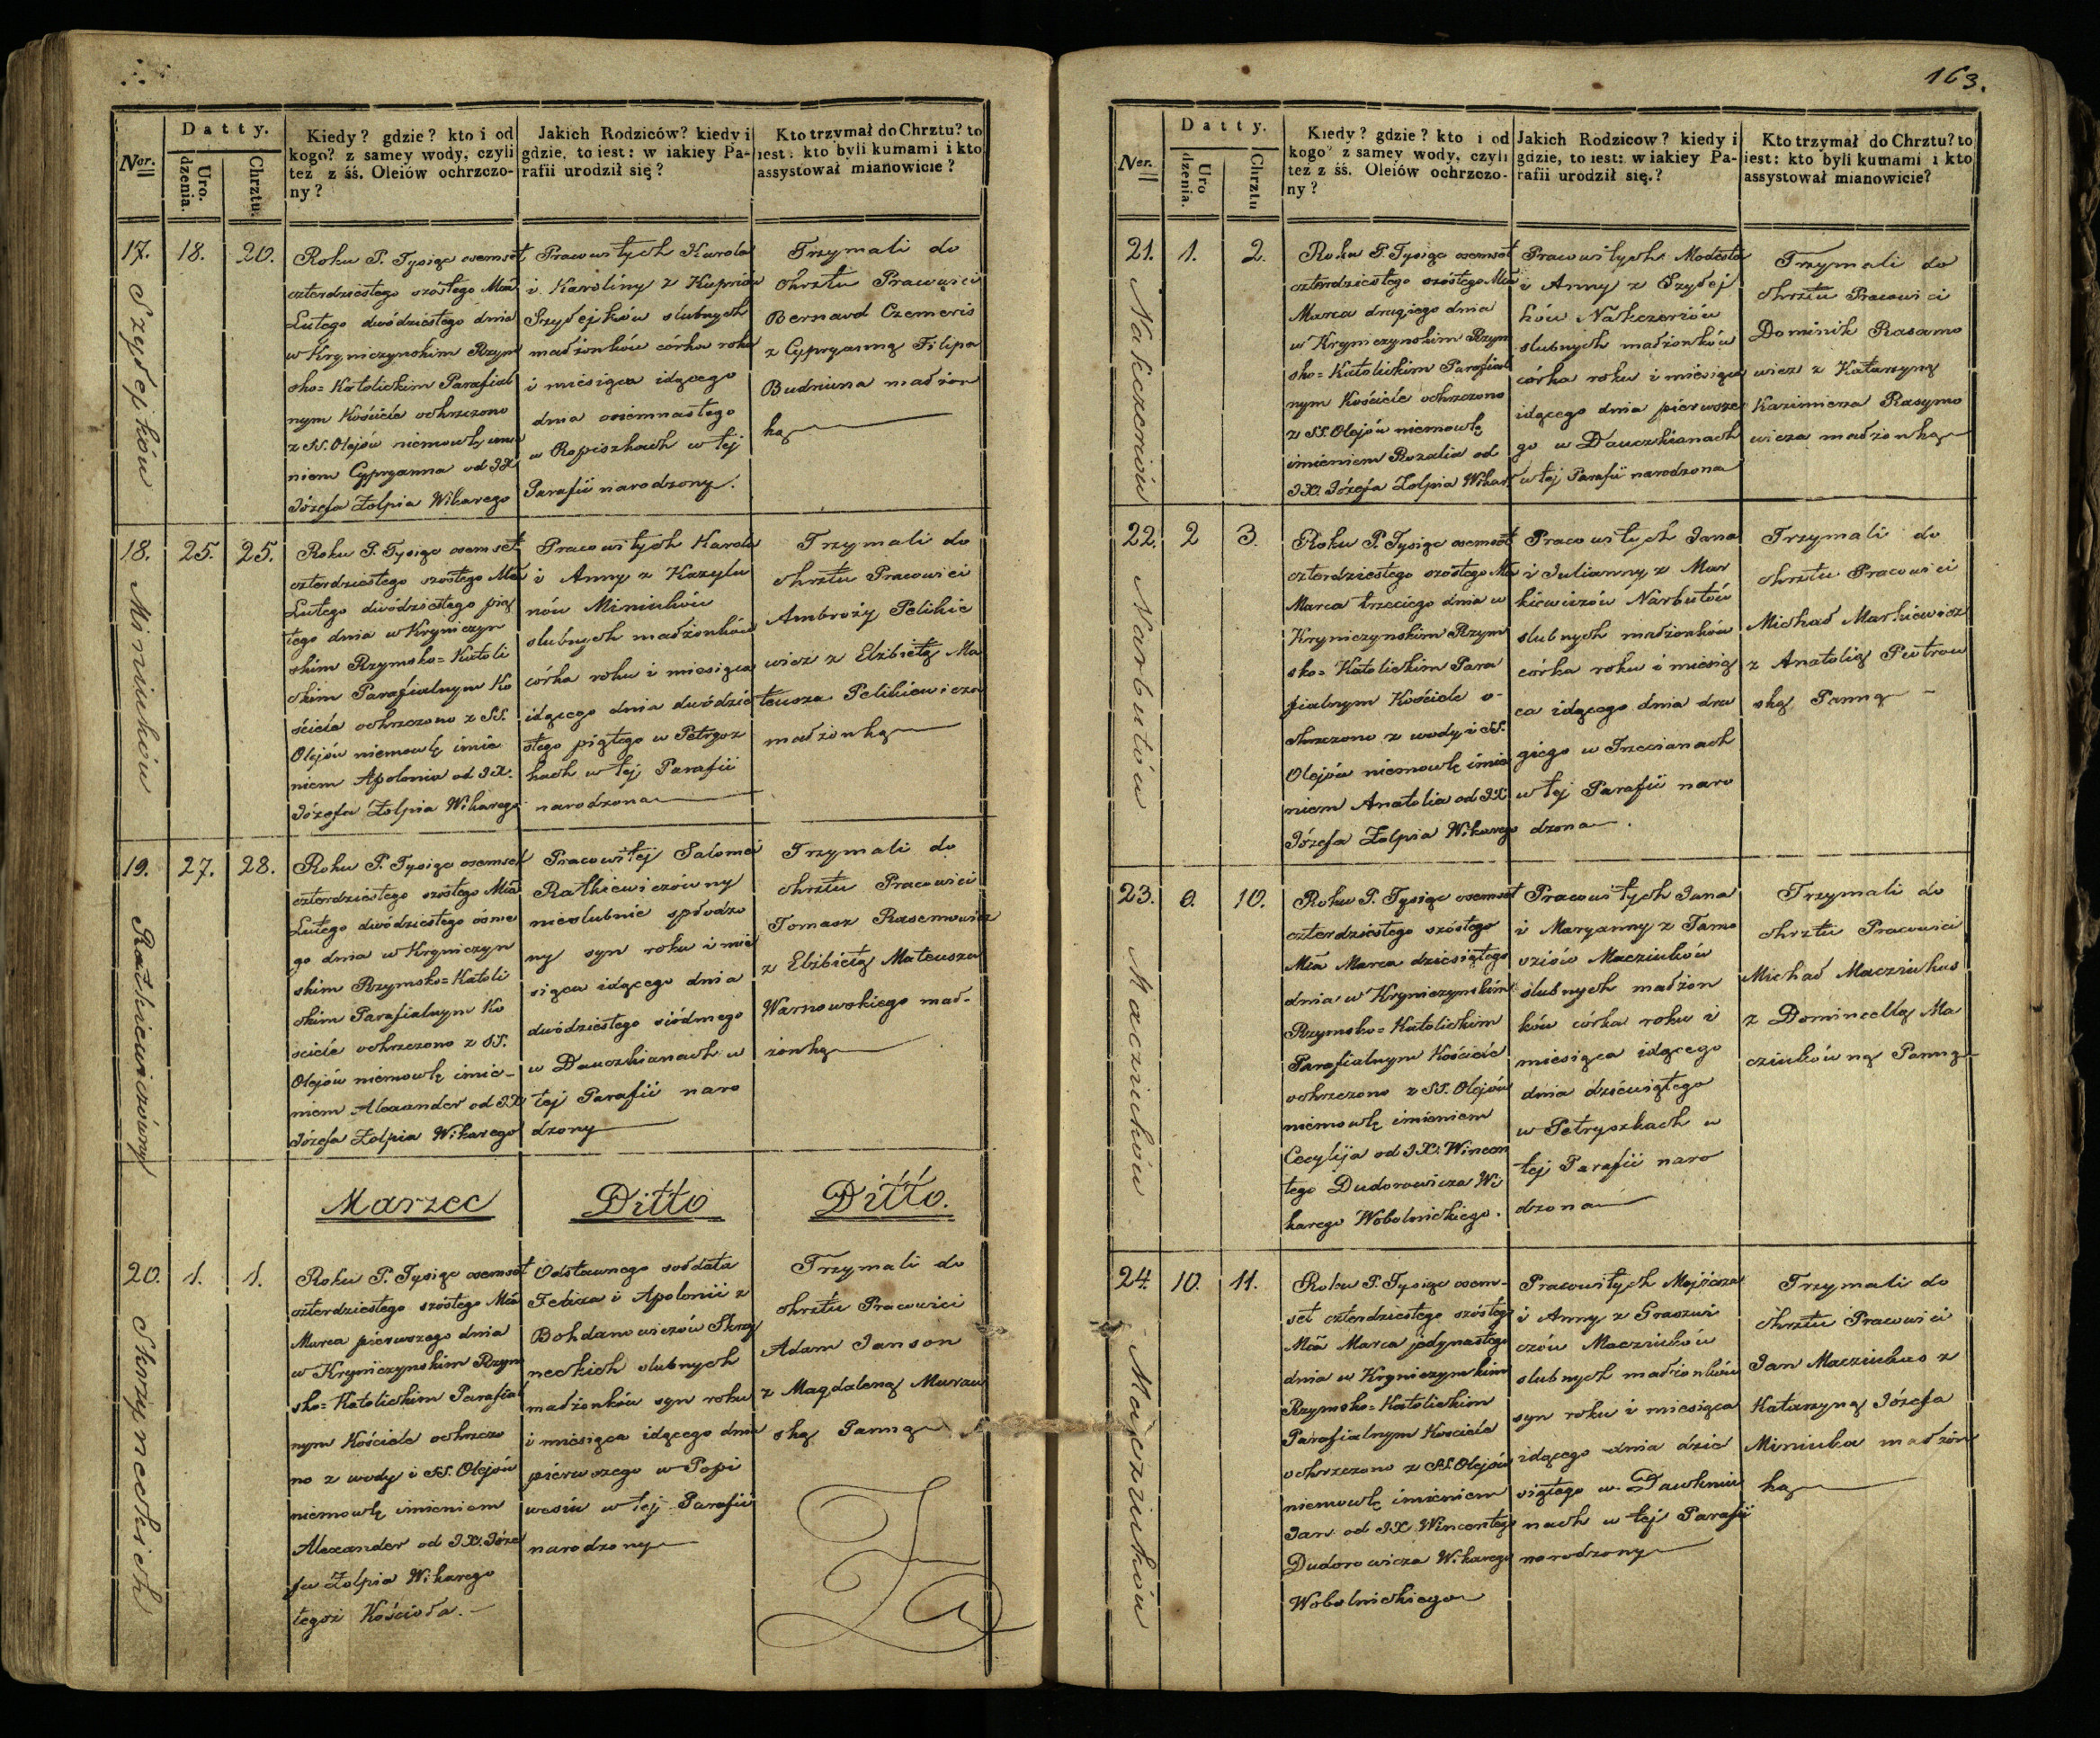 163.
Datty.
Ner.
Uro.
dzenia.
Chrztu.
Kiedy? gdzie? kto i od
kogo? z samey wody, czyli
też z śś. Oleiów ochrzczo-
ny?
Jakich Rodziców? kiedy i
gdzie, to iest: w iakiey Pa-
rafii urodził się?
Kto trzymał do Chrztu? to
iest: kto byli kumami i kto
assystował mianowicie?
17.
18.
20.
Szydejków
Roku P. Tysiąc osemset
czterdziestego szóstego Mca
Lutego dwódziestego dnia
w Kryniczynskim Rzym
sko=Katolickim Parafial
nym Kościele ochrzczono
z SS. Olejów niemowlę imie
niem Cypryanna od JX
Józefa Żołpia Wikarego
Pracowitych Karola
i Karoliny z Kupriów
Szydejków slubnych
małżonków córka roku
i miesiąca idącego
dnia osiemnastego
w Ropiszkach w tej
Parafii narodzony.
Trzymali do
chrztu Pracowici
Bernard Czemeris
z Cypryanną Filipa
Budriuna małżon
ką
18.
25.
25.
Miniuków
Roku P. Tysiąc osemset
czterdziestego szóstego Mca
Lutego dwódziestego pią
tego dnia w Kryniczyn
skim Rzymsko=Katoli
ckim Parafialnym Ko
ściele ochrzczono z SS.
Olejów niemowlę imie
niem Apolonia od JX.
Józefa Żołpia Wikarego
Pracowitych Karola
i Anny z Kazylu
nów Miniuków
slubnych małżonków
córka roku i miesiąca
idącego dnia dwódzie
stego piątego w Petrysz
kach w tej Parafii
narodzona
Trzymali do
chrztu Pracowici
Ambroży Pelikie
wicz z Elżbietą Ma
teusza Pelikiewicza
małżonką
19.
27.
28.
Ratkiewiczówny
Roku P. Tysiąc osemset
czterdziestego szóstego Mca
Lutego dwódziestego osme
go dnia w Kryniczyn
skim Rzymsko=Katoli
ckim Parafialnym Ko
sciele ochrzczono z SS.
Olejów niemowlę imie-
niem Alexander od JX
Józefa Żołpia Wikarego
Pracowitej Salomei
Ratkiewiczówny
nieslubnie spłodzo
ny syn roku i mie
siąca idącego dnia
dwódziestego siódmego
w Dauczkianach w
tej Parafii naro
dzony
Trzymali do
chrztu Pracowici
Tomasz Rasemowicz
z Elżbietą Mateusza
Warnowskiego mał-
żonką
Marzec
Ditto
Ditto.
20.
1.
1.
Skrzyneckich
Roku P. Tysiąc osemset
czterdziestego szóstego Mca
Marca pierwszego dnia
w Kryniczynskim Rzym
sko=Katolickim Parafial
nym Kościele ochrzczo
no z wody i SS. Olejów
niemowlę imieniem
Alexander od JX. Józe
fa Żołpia Wikarego
tegoż Kościoła.
Odstawnego sołdata
Felixa i Apolonii z
Bohdanowiczów Skrzy
neckich slubnych
małżonków syn roku
i miesiąca idącego dnia
pierwszego w Popi
wesiu w tej Parafii
narodzony
Trzymali do
chrztu Pracowici
Adam Janson
z Magdaleną Muraw
ską Panną
Datty.
Ner.
Uro
dzenia.
Chrztu
Kiedy? gdzie? kto i od
kogo? z samey wody, czyli
też z śś. Oleiów ochrzczo-
ny?
Jakich Rodziców? kiedy i
gdzie, to iest: w iakiey Pa-
rafii urodził się.?
Kto trzymał do Chrztu? to
iest: kto byli kumami i kto
assystował mianowicie?
21.
1.
2.
Nakczeriów
Roku P. Tysiąc osemset
czterdziestego szóstego Mca
Marca drugiego dnia
w Krynczynskim Rzym
sko=Katolickim Parafial
nym Kościele ochrzczono
z SS. Olejów niemowlę
imieniem Rozalia od
JX. Józefa Żołpia Wikar
Pracowitych Modesta
i Anny z Szydej
ków Nakczeriów
slubnych małżonków
córka roku i miesiąca
idącego dnia pierwsze
go w Dauczkianach
w tej Parafii narodzona
Trzymali do
chrztu Pracowici
Dominik Rasamo
wicz z Katarzyną
Kazimierza Rasymo
wicza małżonką
22.
2
3.
Narbutów
Roku P. Tysiąc osemset
czterdziestego szóstego Mca
Marca trzeciego dnia w
Kryniczynskim Rzym
sko=Katolickim Para
fialnym Kościele o-
chrzczono z wody i SS.
Olejów niemowlę imie
niem Anatolia od JX
Józefa Żołpia Wikarego
Pracowitych Jana
i Julianny z Mar
kiewiczów Narbutów
slubnych małżonków
córka roku i miesią
ca idącego dnia dru
giego w Trzecianach
w tej Parafii naro
dzona.
Trzymali do
chrztu Pracowici
Michał Markiewicz
z Anatolią Piotrow
ską Panną
23.
0.
10.
Macziuków
Roku P. Tysiąc osemset
czterdziestego szóstego
Mca Marca dziesiątego
dnia w Kryniczynskim
Rzymsko=Katolickim
Parafialnym Kościele
ochrzczono z SS. Olejów
niemowlę imieniem
Cecylija od JX. Wincen
tego Dudorowicza Wi
karego Wobolnickiego.
Pracowitych Jana
i Maryanny z Tamo
sziów Macziuków
slubnych małżon
ków córka roku i
miesiąca idącego
dnia dziewiątego
w Petryszkach w
tej Parafii naro
dzona
Trzymali do
chrztu Pracowici
Michał Macziukus
z Domincellą Ma
cziukówną Panną
24.
10.
11.
Macziuków
Roku P. Tysiąc osem-
set czterdziestego szóstego
Mca Marca jedynastego
dnia w Kryniczynskim
Rzymsko=Katolickim
Parafialnym Kosciele
ochrzczono z SS. Olejów
niemowlę imieniem
Jan od JX Wincentego
Dudorowicza Wikarego
Wobolnickiego
Pracowitych Mojżesza
i Anny z Graszwi
czów Macziuków
slubnych małżonków
syn roku i miesiąca
idącego dnia dzie
siątego w Dawkniu
nach w tej Parafii
narodzony
Trzymali do
chrztu Pracowici
Jan Macziukus z
Katarzyną Józefa
Miniuka małżon
ką